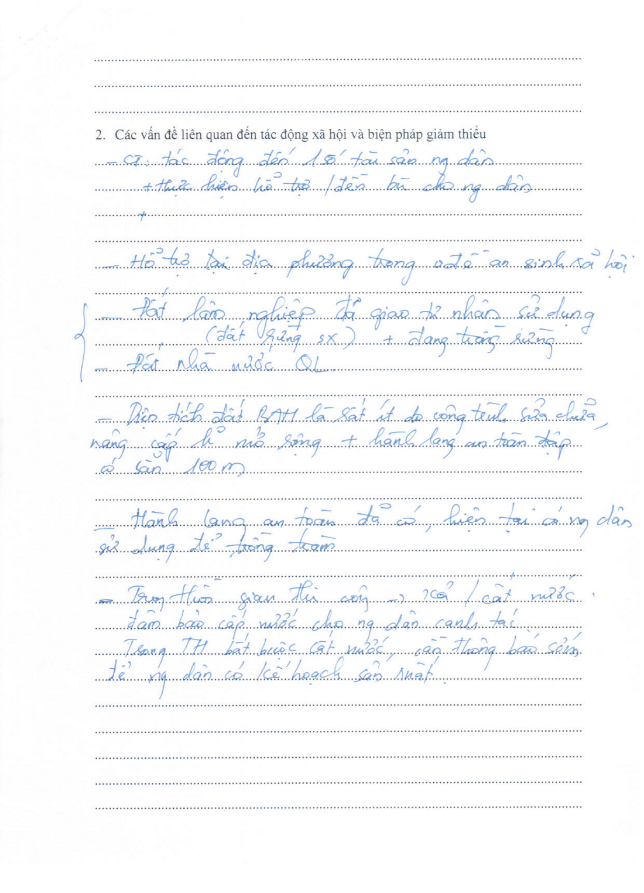 2. Các vấn đề liên quan đến tác động xã hội và biện pháp giảm thiểu
- CT: tác động đến 1 số tài sản ng dân
+ thực hiện hỗ trợ / đền bù cho ng dân
+
- Hỗ trợ tại địa phương trong vđề an sinh xã hội
- Đất lâm nghiệp đã giao tư nhân sử dụng
(đất rừng sx) + đang trồng rừng
- Đất nhà nước QL
- Diện tích đất BAH là rất ít do công trình sửa chữa,
nâng cấp k mở rộng + hành lang an toàn đập
có sẵn 100m
- Hành lang an toàn đã có, hiện tại có ng dân
sử dụng để trồng tràm
- Trong thời gian thi công → xả / cắt nước.
đảm bảo cấp nước cho ng dân canh tác.
Trong TH bắt buộc cắt nước, cần thông báo sớm
để ng dân có kế hoạch sản xuất.